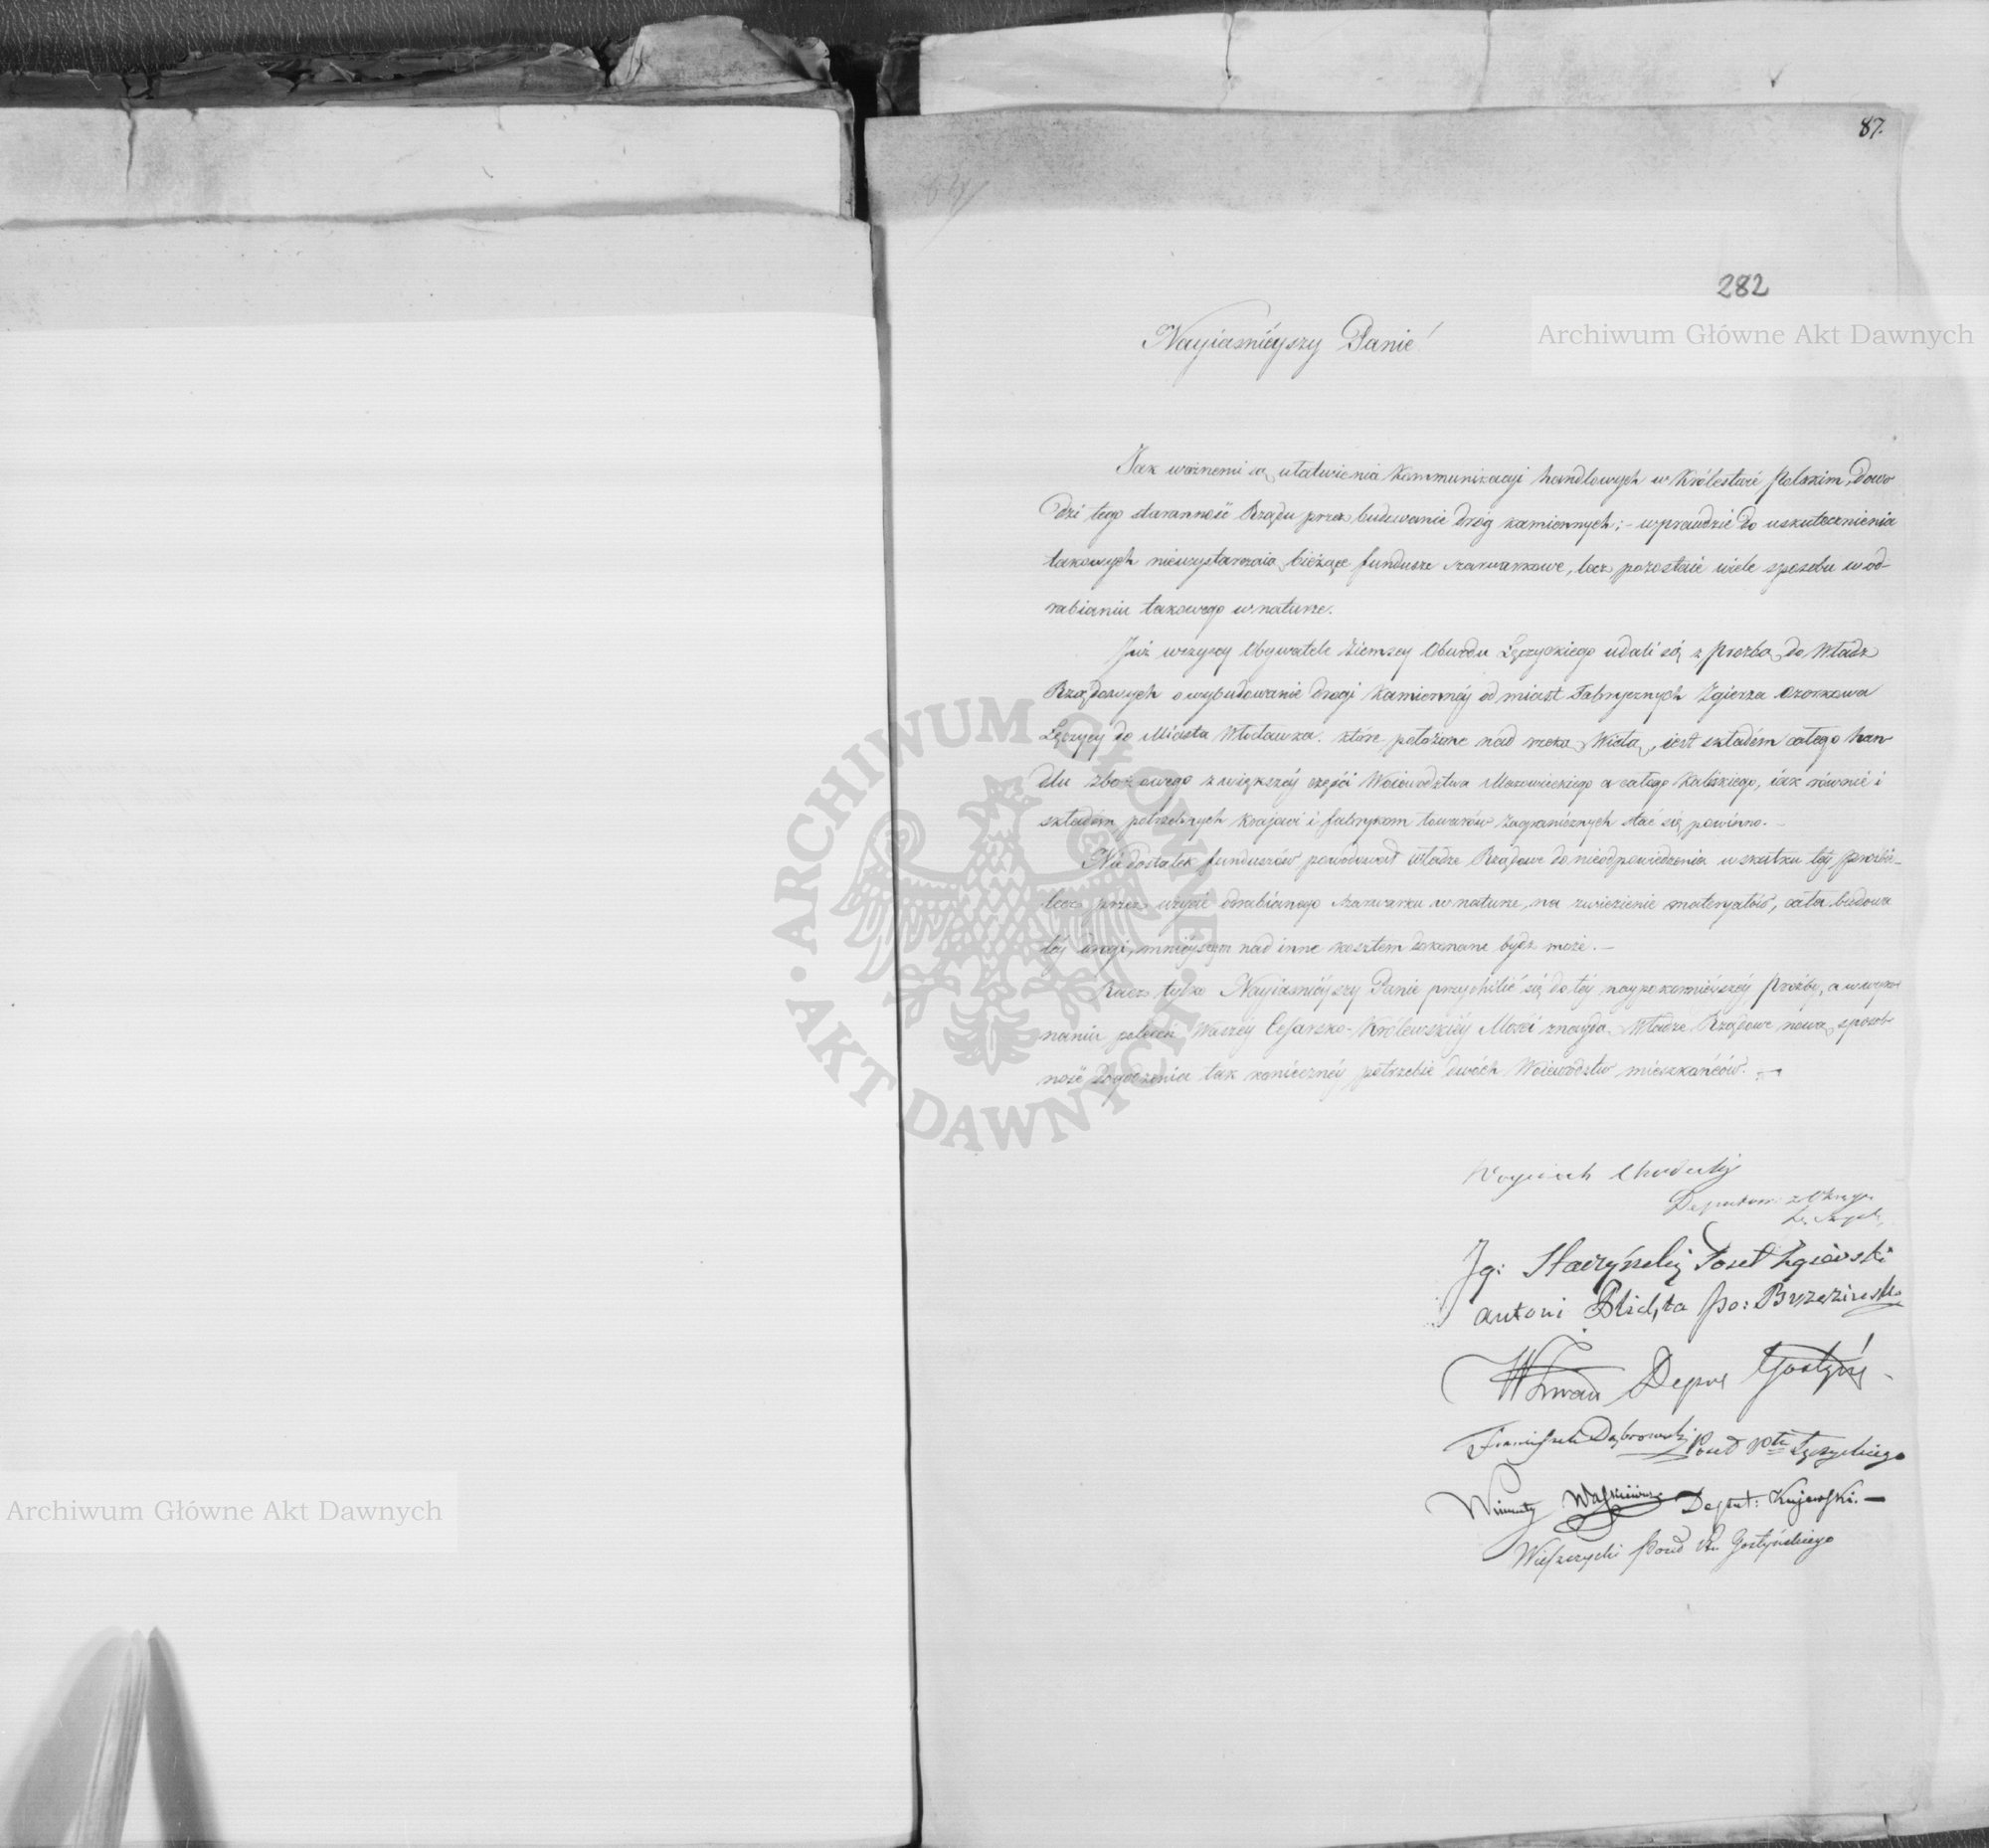 87.
282
Nayiaśnieyszy Panie!
Jak ważnemi są ułatwienia Kommunikacyi handlowych w Królestwie Polskim, dowo
dzi tego staranność Rządu przez budowanie dróg kamiennych; - wprawdzie do uskutecznienia
takowych niewystarczaią bieżące fundusze szarwarkowe, lecz pozostaie wiele sposobu w od-
rabianiu takowego w naturze.
Już wszyscy Obywatele Ziemscy Obwodu Łęczyckiego udali się z prozbą do Władz
Rządowych o wybudowanie drogi Kamiennéy od miast Fabrycznych Zgierza Ozorkowa
Łęczycy do Miasta Włocławka. które położone nad rzeką Wisłą, iest składem całego han
dlu zbożowego z większéy części Woiewództwa Mazowieckiego a całego Kaliskiego, iak równie i
składem potrzebnych Kraiowi i fabrykom towarów zagranicznych stać się powinno. -
Niedostatek funduszów powodował Władze Rządowe do nieodpowiedzenia w skutku téy prozbie -
lecz przez użycie odrabianego szarwarku w naturze, na zwiezienie materyałów, cała budowa
téy drogi, mnieyszym nad inne kosztem dokonane bydź może. -
Racz tylko Nayiaśnieyszy Panie przychilić się do téy naypokornieyszéy Proźby, a w wyko
naniu poleceń Waszéy Cesarsko-Królewskiéy Mości znaydą Władze Rządowe nową sposob
ność dogodzenia tak konieczney potrzebie dwóch Woiewództw mieszkańców. -
Woyciech
Deputow: z Okręgu
Ig: Starzyński Poseł Zgierski
Antoni Plichta Po: Brzeziński
Deput Gostyń
Franciszek Dąbrowski Poseł Ptu Łęczyckiego
Wincenty Deput: Kujawski. -
Poseł Ptu Gostyńskiego
Archiwum Główne Akt Dawnych
Archiwum Główne Akt Dawnych
ARCHIWUM GŁÓWNE AKT DAWNYCH